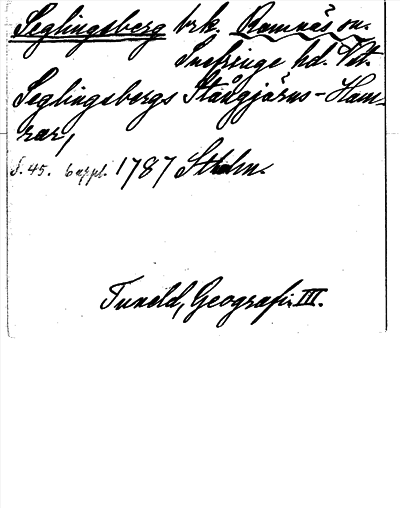 Seglingsberg brk. Ramnäs sn.
Snefringe hd. Vstm.
Seglingsbergs Stångjärns-Ham-
rar,
s. 45. 6 uppl. 1787 Sthlm.
Tuneld, Geografi III.